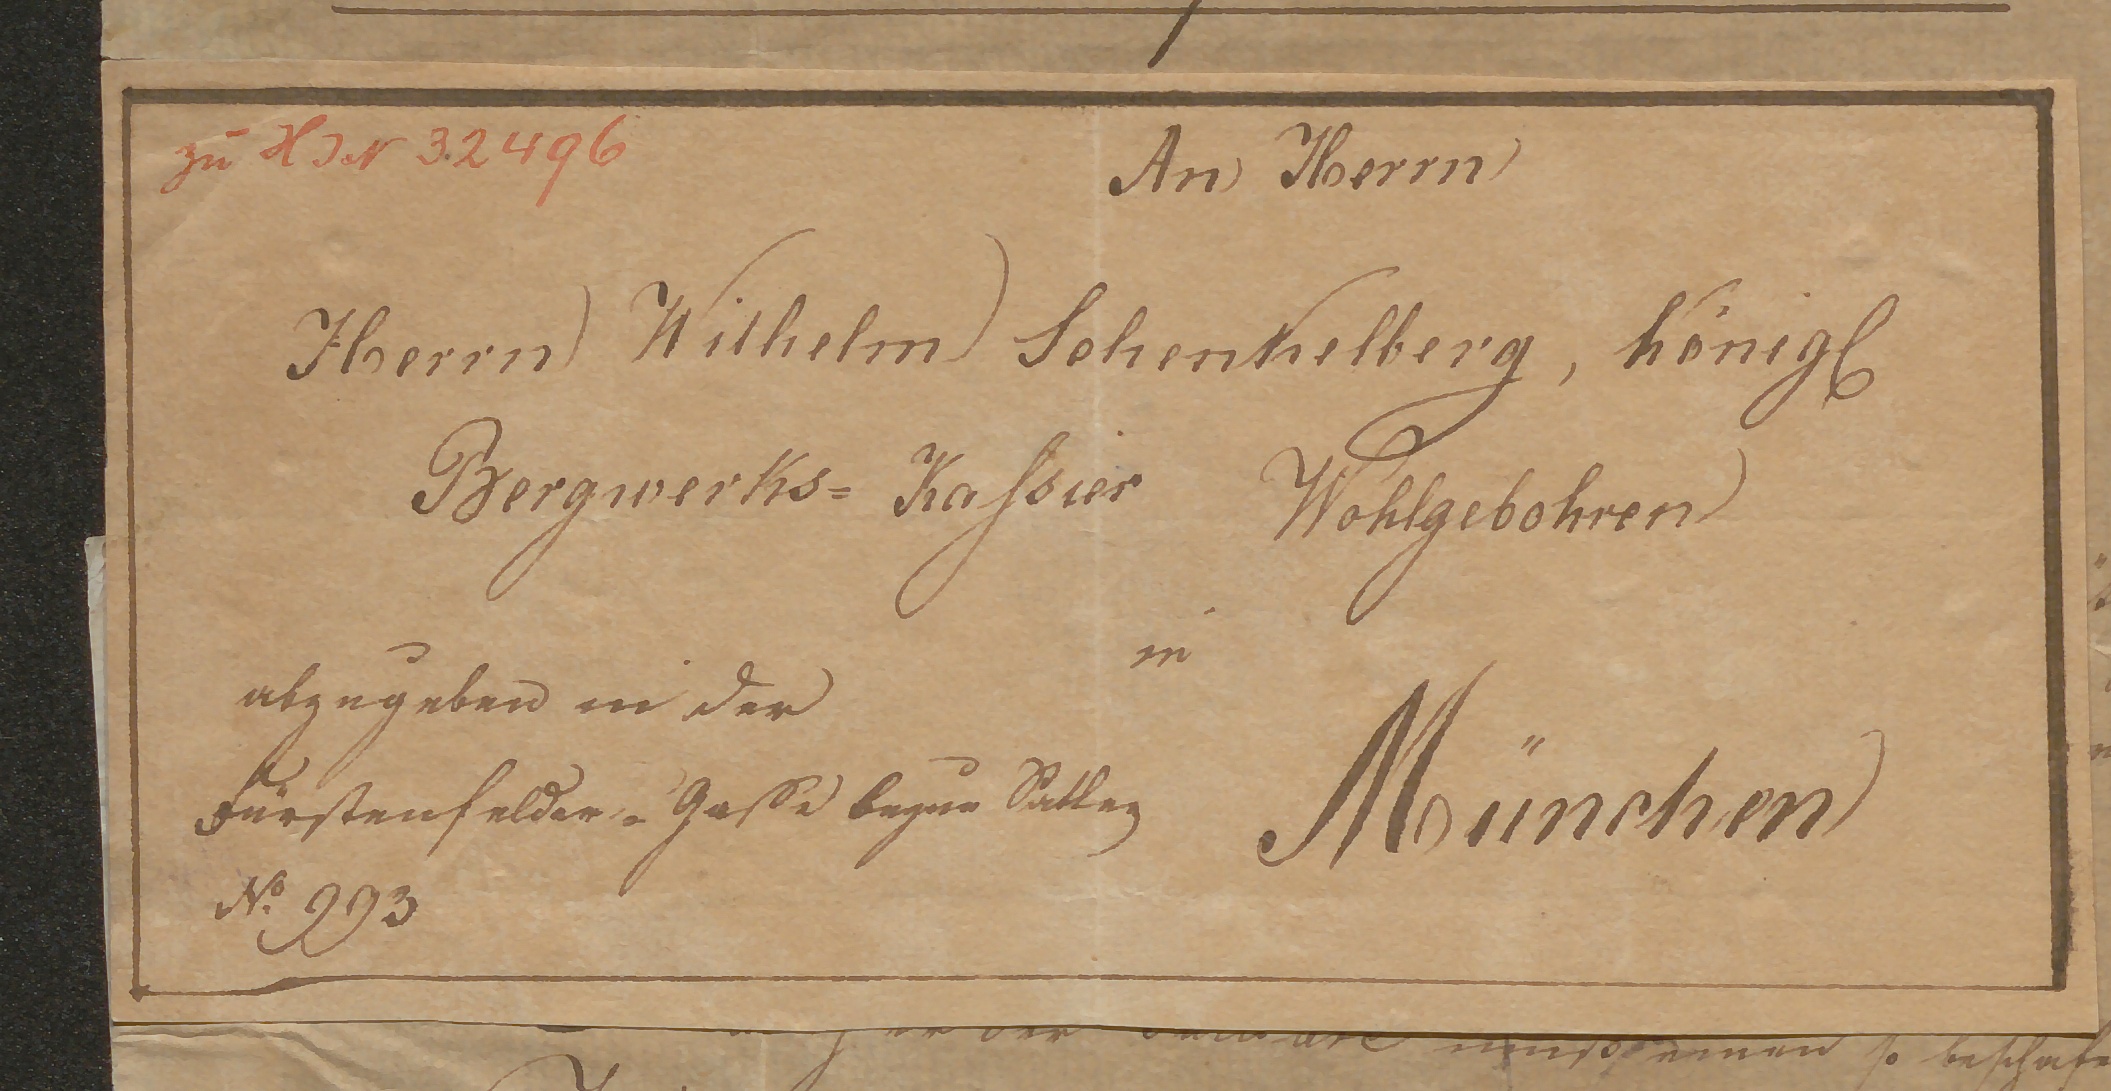 zu HIN 32496
An Herrn
Herrn Wilhelm Schenkelberg, königl
Bergwerks= Kassier Wohlgebohren
in
München
abzugeben in der
Fürstenfelder=Gasse
No 993